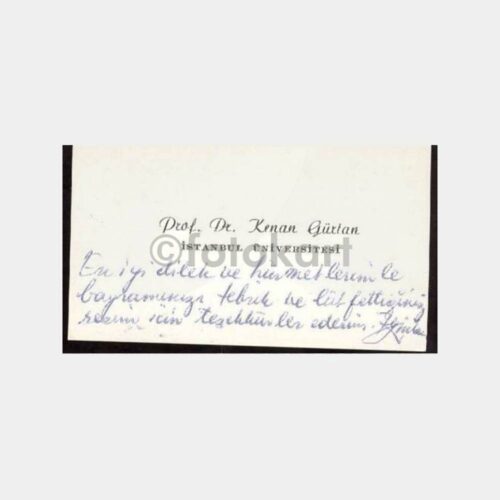 Prof. Dr. Kenan Gürtan
İSTANBUL ÜNİVERSİTESİ
©fotokart
En iyi dilek ve hürmetlerimle
bayramınızı tebrik ve lütfettiğiniz
resim için teşekkürler ederim.